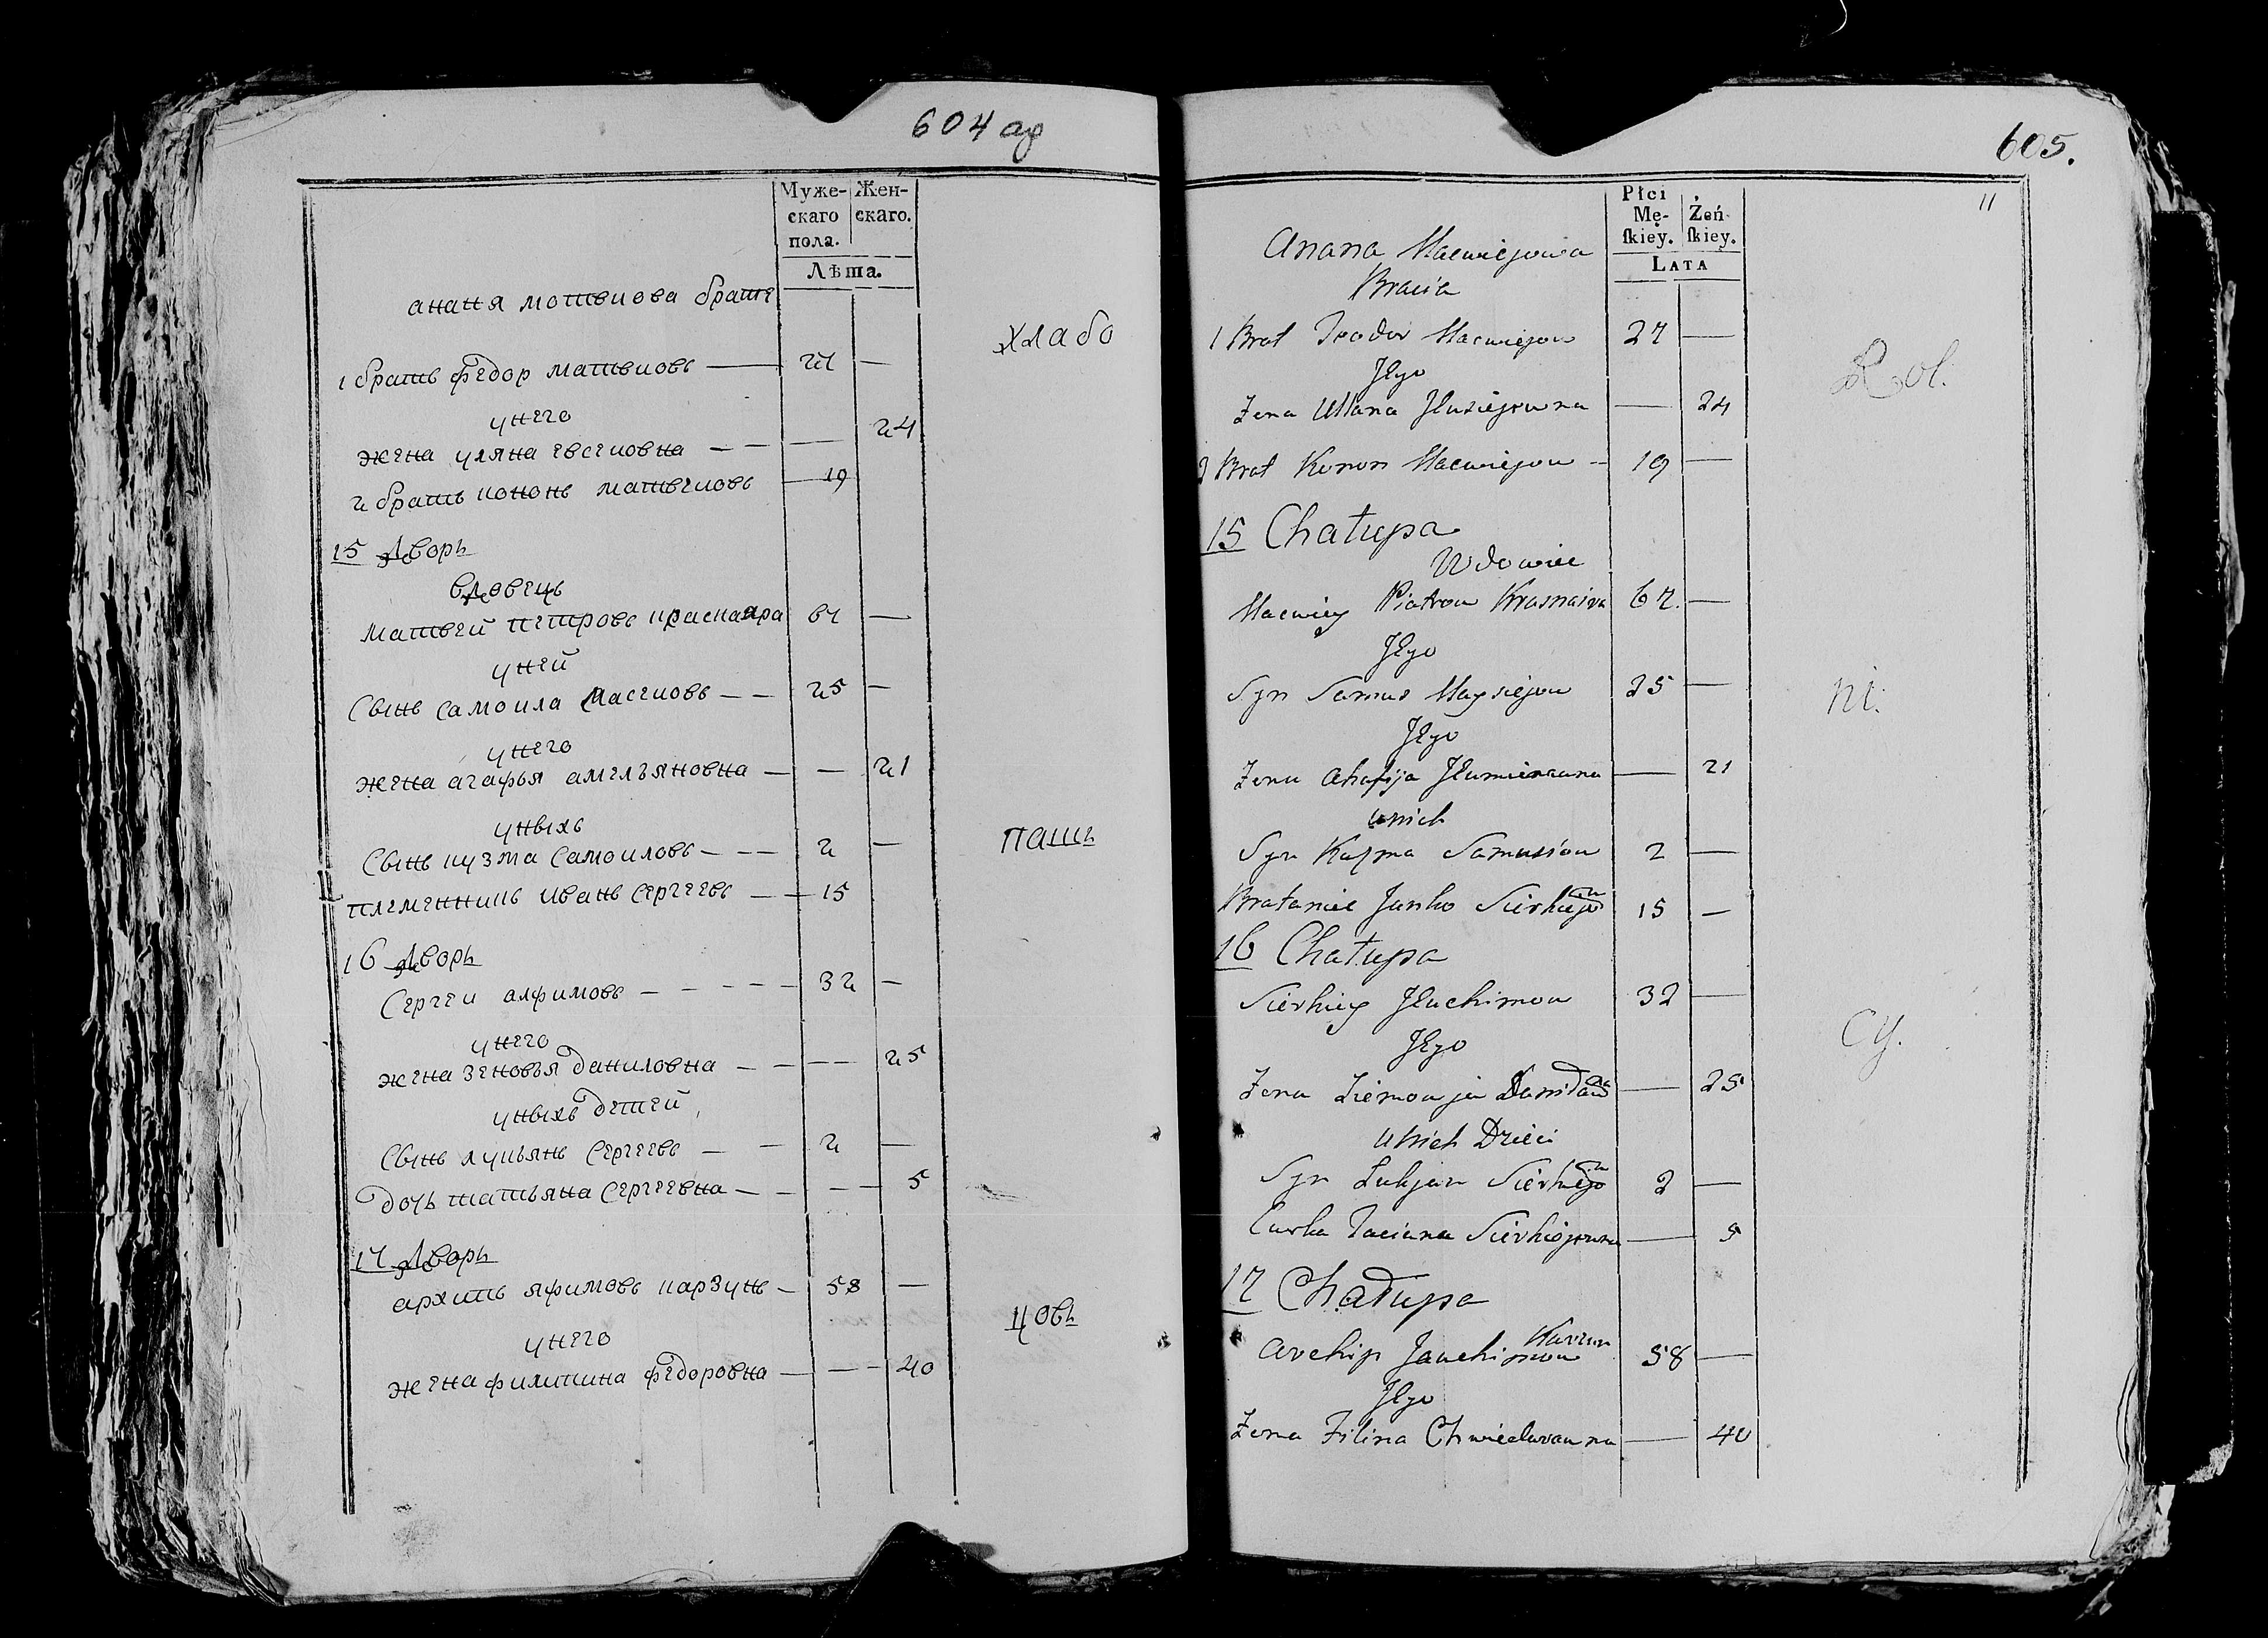 604 об
Муже-
скаго
пола.
Жен-
скаго.
Лѣта.
ананя мотвиова братъ
1 братъ федор матвиовъ — 27 —
унего
жена уляна евсеиовна — — 24
2 братъ кононъ матвеиовъ — 19
15 Дворъ
вдовецъ
матвей петровъ краска 67 —
уней
Сынъ самоила масеиовъ — 25 —
унего
жена агафья амельяновна — — 21
уныхъ
Сынъ кузма самоиловъ — 2 —
племенникъ иванъ сергеевъ — 15
16 Дворъ
Сергеи алфимовъ — 32 —
унего
жена зеновья даниловна — — 25
уныхъ детей
Сынъ лукьянъ сергеевъ — 2 —
дочь татьяна сергеевна — — 5
17 Дворъ
архипъ яфимовъ карзунъ — 58 —
унего
жена филипина федоровна — — 40
хлабо
паш
цовъ
605.
11
Płci
Mę-
skiey.
Żeń-
skiey.
LATA
Anana Macwiejowa
Bracia
1 Brat Teodor Macwiejow 27 —
Jego
Zena Ullana Jewsiejowna — 24
2 Brat Konon Macwiejow 19 —
15 Chałupa
Wdowiec
Macwiey Piotrow 67 —
Jego
Syn Samus Maysiejow 25 —
Jego
Zena Ahafija — 21
u nich
Syn Kuzma Samusiow 2 —
Bratanie Janko Sierhiejow 15 —
16 Chałupa
Sierhiey Jeuchimow 32 —
Jego
Zena Ziemowja — 25
u nich Dzieci
Syn Lukjan Sierhiejow 2 —
Curka Taciana Sierhiejowna — 5
17 Chałupa
Archip Jauchimow Karzun 58 —
Jego
Zena Filina Chwiedorauna — 40
Rol.
ni.
cy.